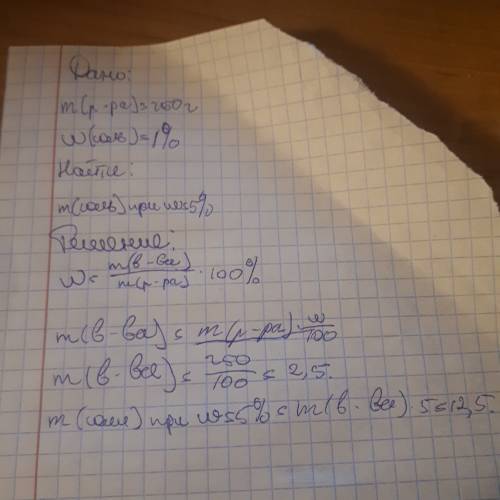 Дано:
m(р-ра)=250г
w(соль)=1%
Найти:
m(соль) при w=5%
Решение:
w = m(в-ва) / m(р-ра) · 100%
m(в-ва) = m(р-ра) · w / 100
m(в-ва) = 250 / 100 = 2,5.
m(соли) при w=5% = m(в-ва) · 5 = 12,5.